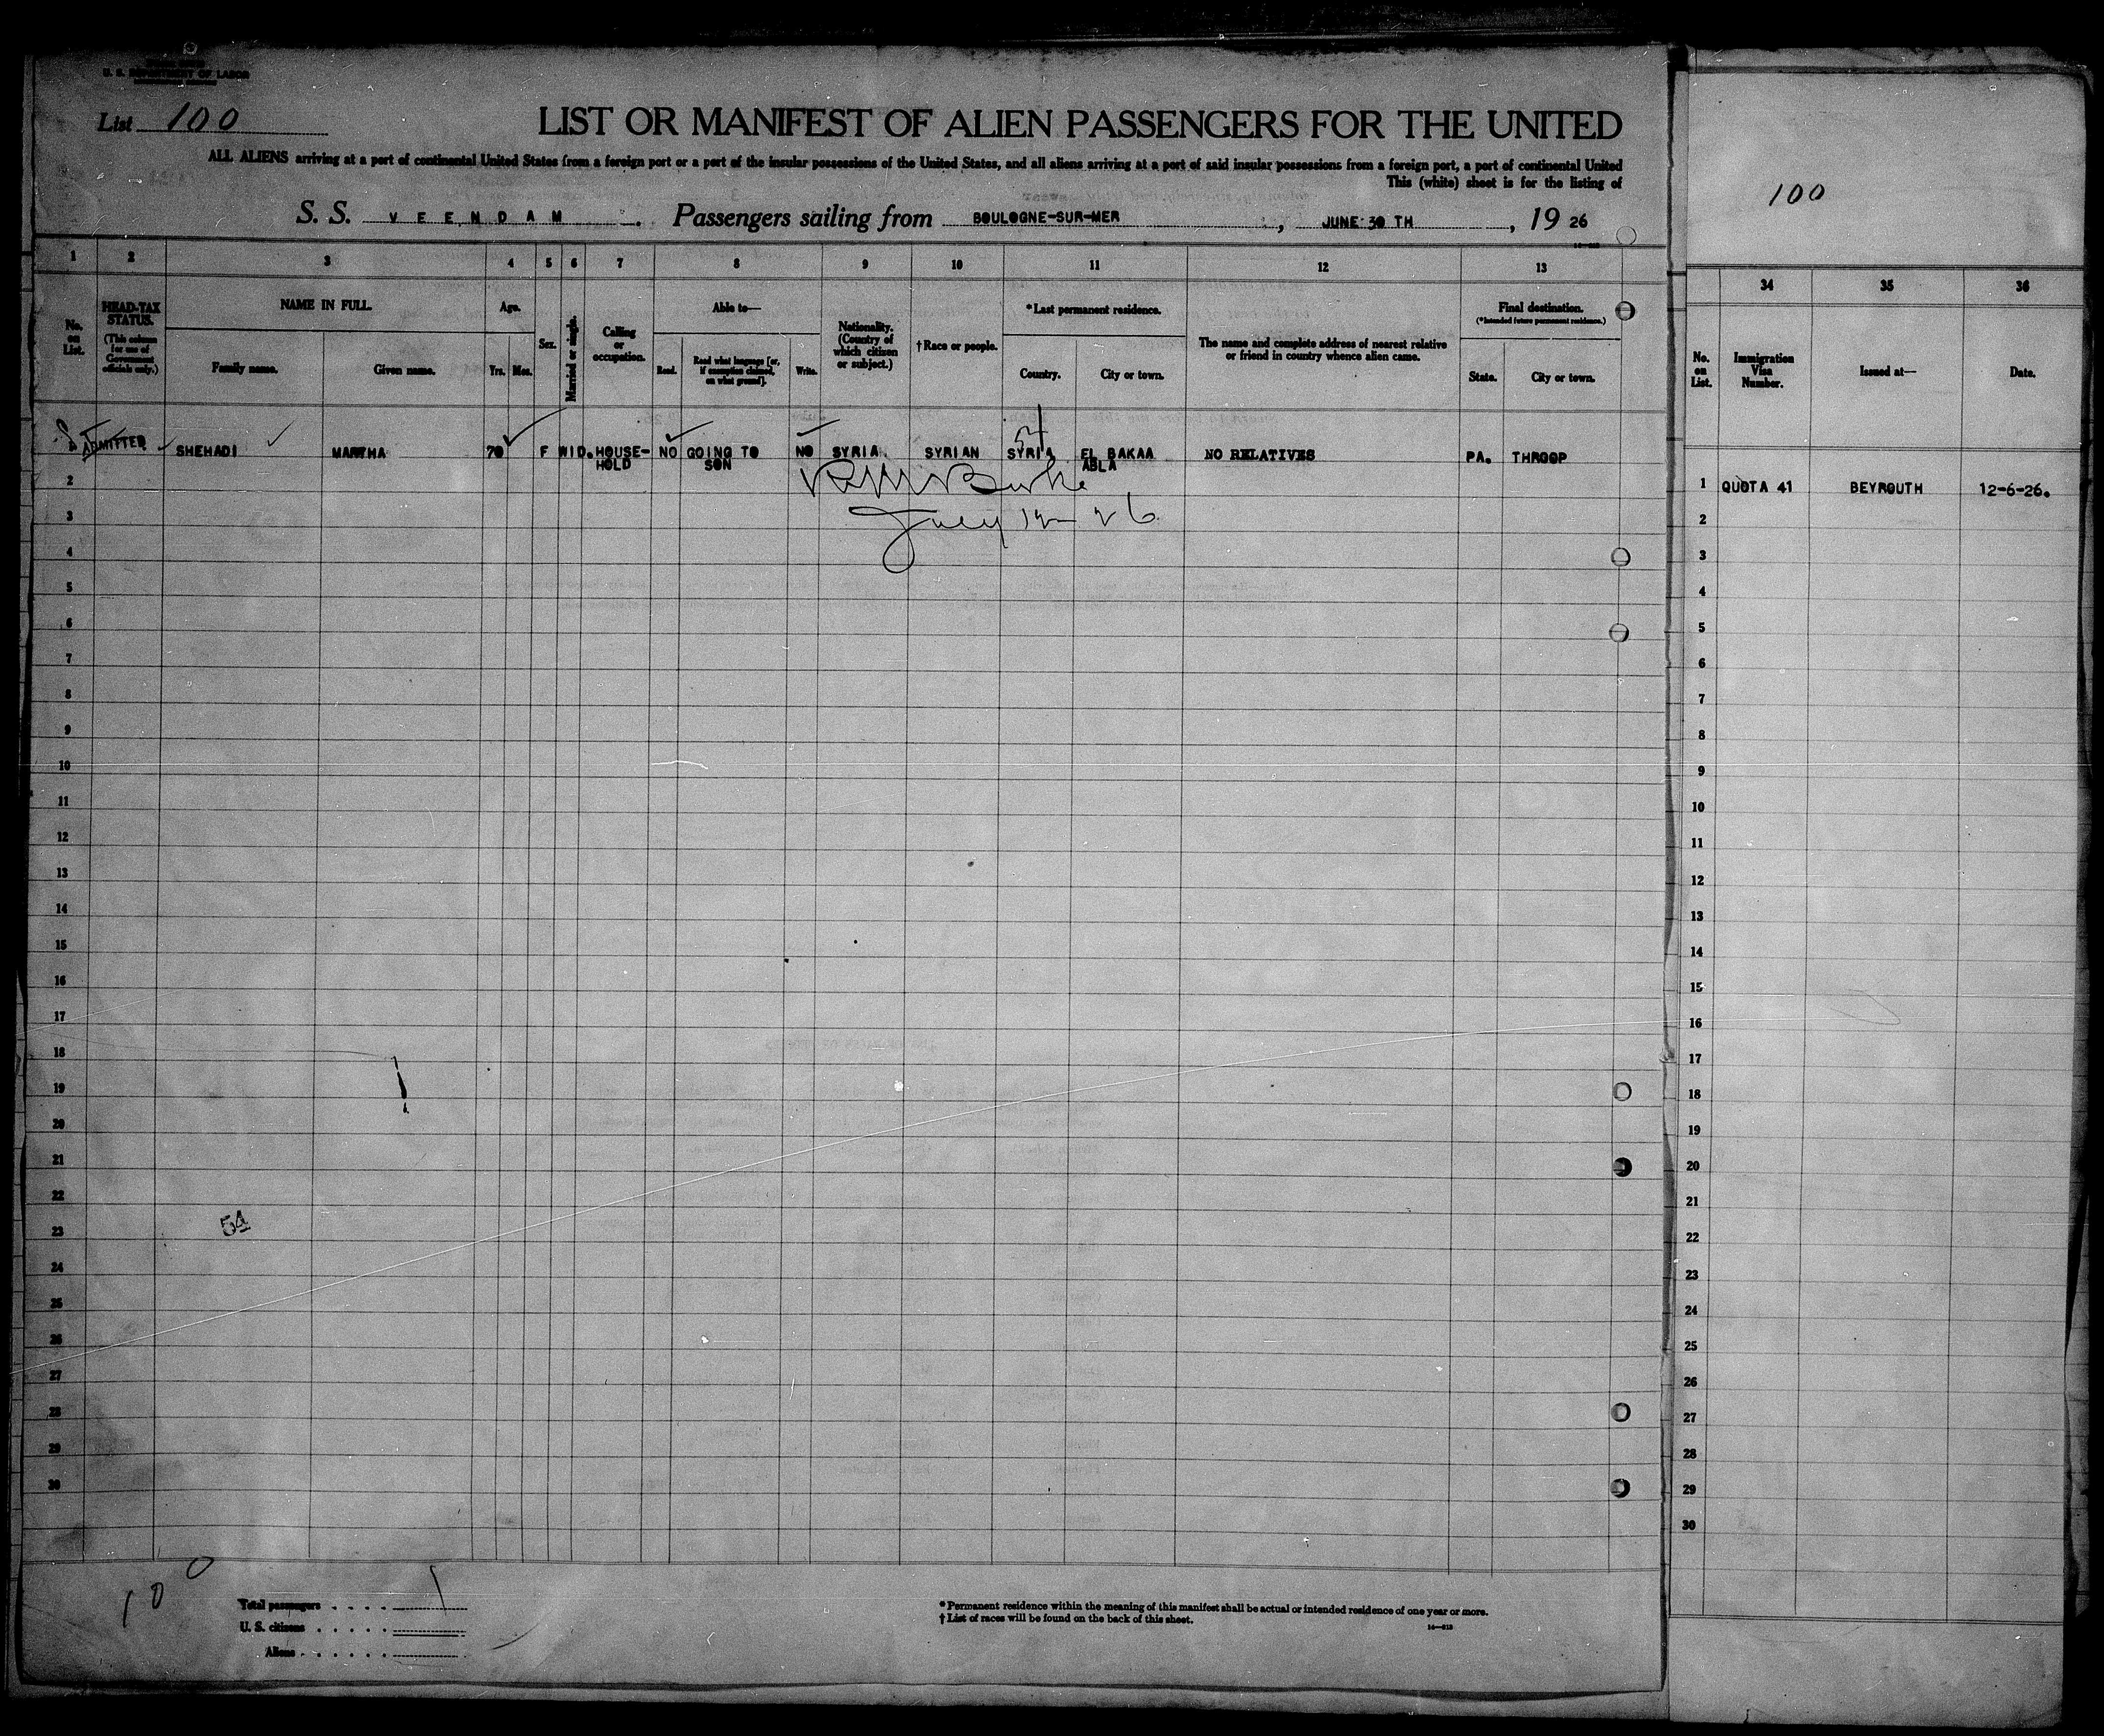 U. S. DEPARTMENT OF LABOR
List 100
LIST OR MANIFEST OF ALIEN PASSENGERS FOR THE UNITED
ALL ALIENS arriving at a port of continental United States from a foreign port or a port of the insular possessions of the United States, and all aliens arriving at a port of said insular possessions from a foreign port, a port of continental United
This (white) sheet is for the listing of
S. S. VEENDAM. Passengers sailing from BOULOGNE-SUR-MER, JUNE 30 TH, 19 26
1 2 3 4 5 6 7 8 9 10 11 12 13
No. on List.
HEAD-TAX STATUS.
(This column for use of Government officials only.)
NAME IN FULL.
Family name. Given name.
Age.
Yrs. Mos.
Sex.
Married or single.
Calling or occupation.
Able to—
Read. Read what language [or, if exemption claimed, on what ground]. Write.
Nationality. (Country of which citizen or subject.)
†Race or people.
*Last permanent residence.
Country. City or town.
The name and complete address of nearest relative or friend in country whence alien came.
Final destination.
(*Intended future permanent residence.)
State. City or town.
ADMITTED SHEHADI MARTHA 70 F WID. HOUSE- NO GOING TO NO SYRIA SYRIAN SYRIA EL BAKAA NO RELATIVES PA. THROOP
HOLD SON ABLA
54
2
July 12 26
3
4
5
6
7
8
9
10
11
12
13
14
15
16
17
18
19
20
21
22
23
54
24
25
26
27
28
29
30
100
Total passengers . . . . 1
U. S. citizens . . . . .
Aliens . . . . . .
*Permanent residence within the meaning of this manifest shall be actual or intended residence of one year or more.
†List of races will be found on the back of this sheet.
100
34 35 36
No. on List.
Immigration Visa Number.
Issued at—
Date.
1 QUOTA 41 BEYROUTH 12-6-26.
2
3
4
5
6
7
8
9
10
11
12
13
14
15
16
17
18
19
20
21
22
23
24
25
26
27
28
29
30